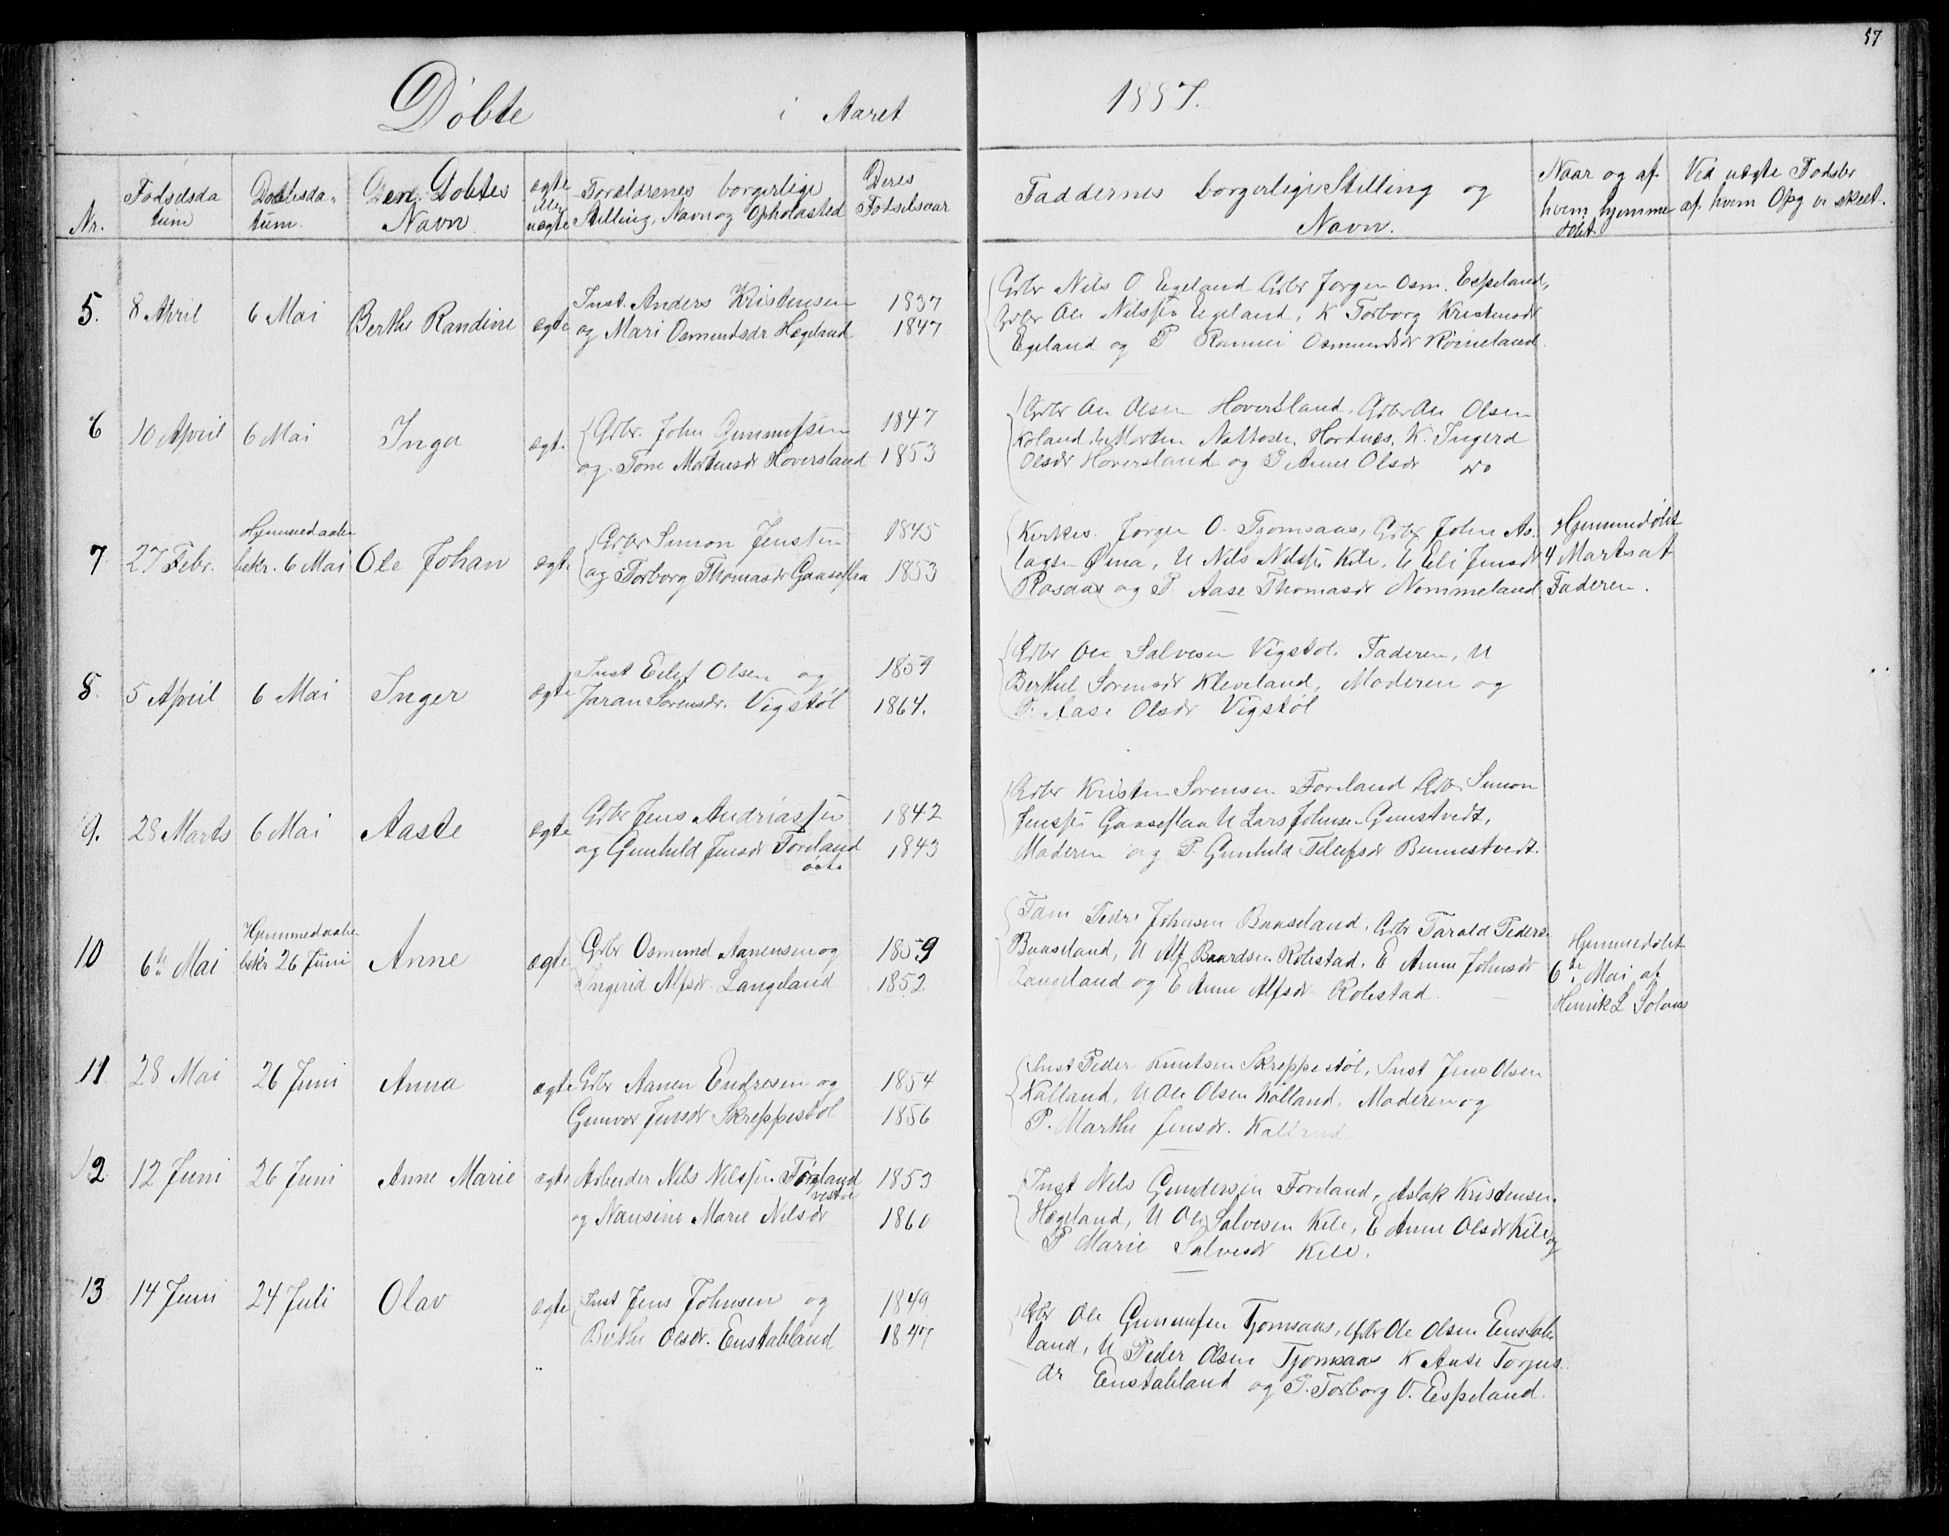 57
Døbte i Aaret 1887.
Nr. Fødselsdatum Daabsdatum. Den Døbtes Navn. ægte eller uægte Forældrenes borgerlige Stilling, Navn og Opholdsted Deres Fødselsaar Faddernes borgerlige Stilling og Navn. Naar og af hvem hjemmedøbt. Ved uægte Fødsler af hvem Opg er skeet.
5. 8 April 6 Mai Berthe Randine ægte Inst. Anders Kristensen 1837
og Mari Osmundsdr Hægeland 1847
Grbr Nils O Egeland Grbr Jørgen Osm. Espeland,
Grbr Ole Nilssen Egeland, K Torborg Kristensdr
Egeland og P Osmundsdr Røineland.
6 10 April 6 Mai Inga ægte Grbr. John Gunnufsen 1847
og Tone Mortensdr Hoversland 1853
Grbr Ole Olsen Hoversland, Grbr Ole Olsen
Koland, Morten Hordnes, K. Ingerd
Olsdr Hoversland og P Anne Olsdr do
7 27 Febr. Hjemmedaaben bekr. 6 Mai Ole Johan ægte Grbr Simon Jensen 1845
og Torborg Thomasdr Gaaseflaa 1853
Kirkes. Jørgen O. Tjomsaas, Grbr John As-
lagsen Øina, U Nils Nilssen Kile, U Eli Jensdr
Rosaas og P. Aase Thomasdr Nommeland
Hjemmedøbt
4 Marts af
Faderen.
8. 5 April 6 Mai Inger ægte Inst Eilef Olsen og 1859
Jaran Sørensdr. Vigstøl 1864.
Grbr Ole Salvesen Vigstøl. Faderen, U
Berthel Sørensdr Kleveland, Moderen og
P. Aase Olsdr Vigstøl
9. 28 Marts 6 Mai Aaste ægte Grbr Jens Andriassen 1842
og Gunhild Jensdr Føreland 1843
østre
Grbr Kristen Sørensen Føreland Grbr Simon
Jenssen Gaaseflaa U Lars Johnsen Gunstvedt,
Moderen og P. Gunhild Tellefsdr Bunnestvedt.
10 6te Mai Hjemmedaaben bekr 26 Juni Anne ægte Grbr Osmund Aanensen og 1859
Ingerid Alfsdr. Langeland 1852
Peder Johnsen Baaseland, Grbr Tarald Peders.
Baaseland, U Alf Baardsen Robstad, E Anne Johnsdr
Langeland og E Anne Alfsdr Robstad.
Hjemmedøbt
6te Mai af
Henrik L Solaas
11 28 Mai 26 Juni Anna ægte Grbr Aanen Endresen og 1854
Gunvor Jensdr Skreppestøl 1856
Inst Peder Knutsen Skreppestøl, Inst Jens Olsen
Kalland, U Ole Olsen Kalland, Moderen og
P. Marthe Jensdr. Kalland
12 12 Juni 26 Juni Anne Marie ægte Arbeider Nils Nilssen Føreland 1853
vestre
og Nansine Marie Nilsdr 1860
Inst Nils Gundersen Føreland, Aslak Kristensen
Hægeland, U Ole Salvesen Kile, E Anne Olsdr Kile og
P Marie Salvesdr Kile.
13 14 Juni 24 Juli Olav ægte Inst Jens Johnsen og 1849
Berthe Olsdr. Enstabland 1847
Grbr Ole Gunnufsen Tjomsaas, Grbr Ole Olsen Enstab-
land, U Peder Olsen Tjomsaas K Aase Torjus-
dr Enstabland og P. Torborg O. Espeland.